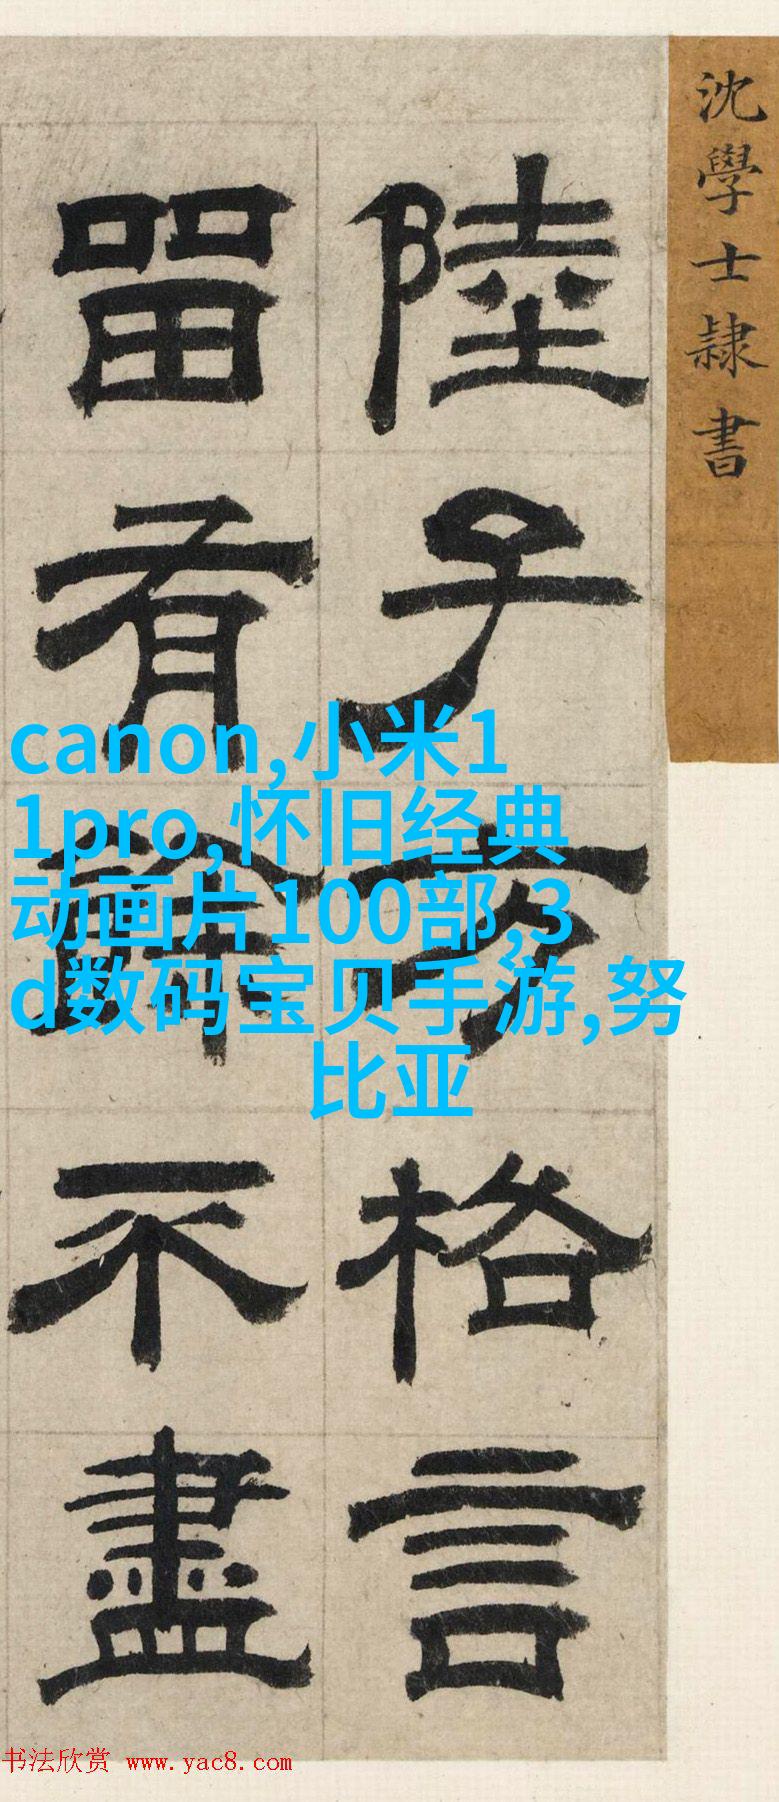 沈學士隸書
陸子方格言
留有餘不盡
canon,小米1
1pro,怀旧经典
动画片100部,3
d数码宝贝手游,努
比亚
书法欣赏 www.yac8.com